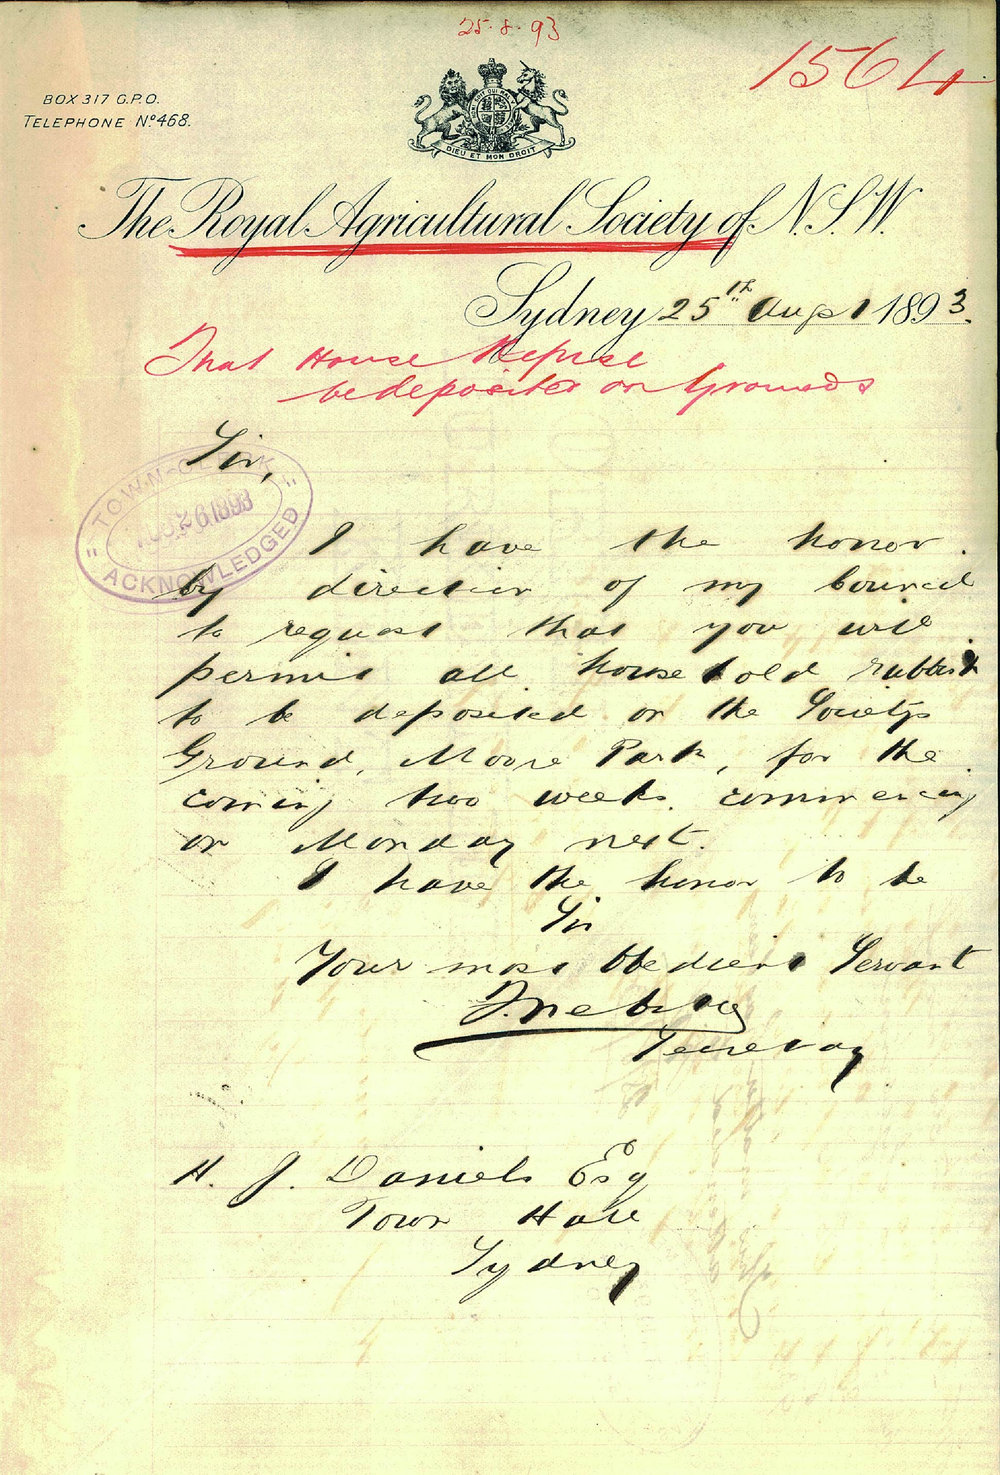 25.8.93
1564
BOX 317 G.P.O.
TELEPHONE No 468.
DIEU ET MON DROIT
The Royal Agricultural Society of N.S.W.
Sydney 25th Augt 1893.
That House Refuse
be deposited on Grounds
Sir,
TOWN CLERK
26 1893
ACKNOWLEDGED
I have the honor
by direction of my Council
to request that you will
permit all household rubbish
to be deposited on the Society's
Ground, Moore Park, for the
coming two weeks, commencing
on Monday next.
I have the honor to be
Sir
Your most Obedient Servant
Secretary
H. J. Daniels Esq
Town Hall
Sydney